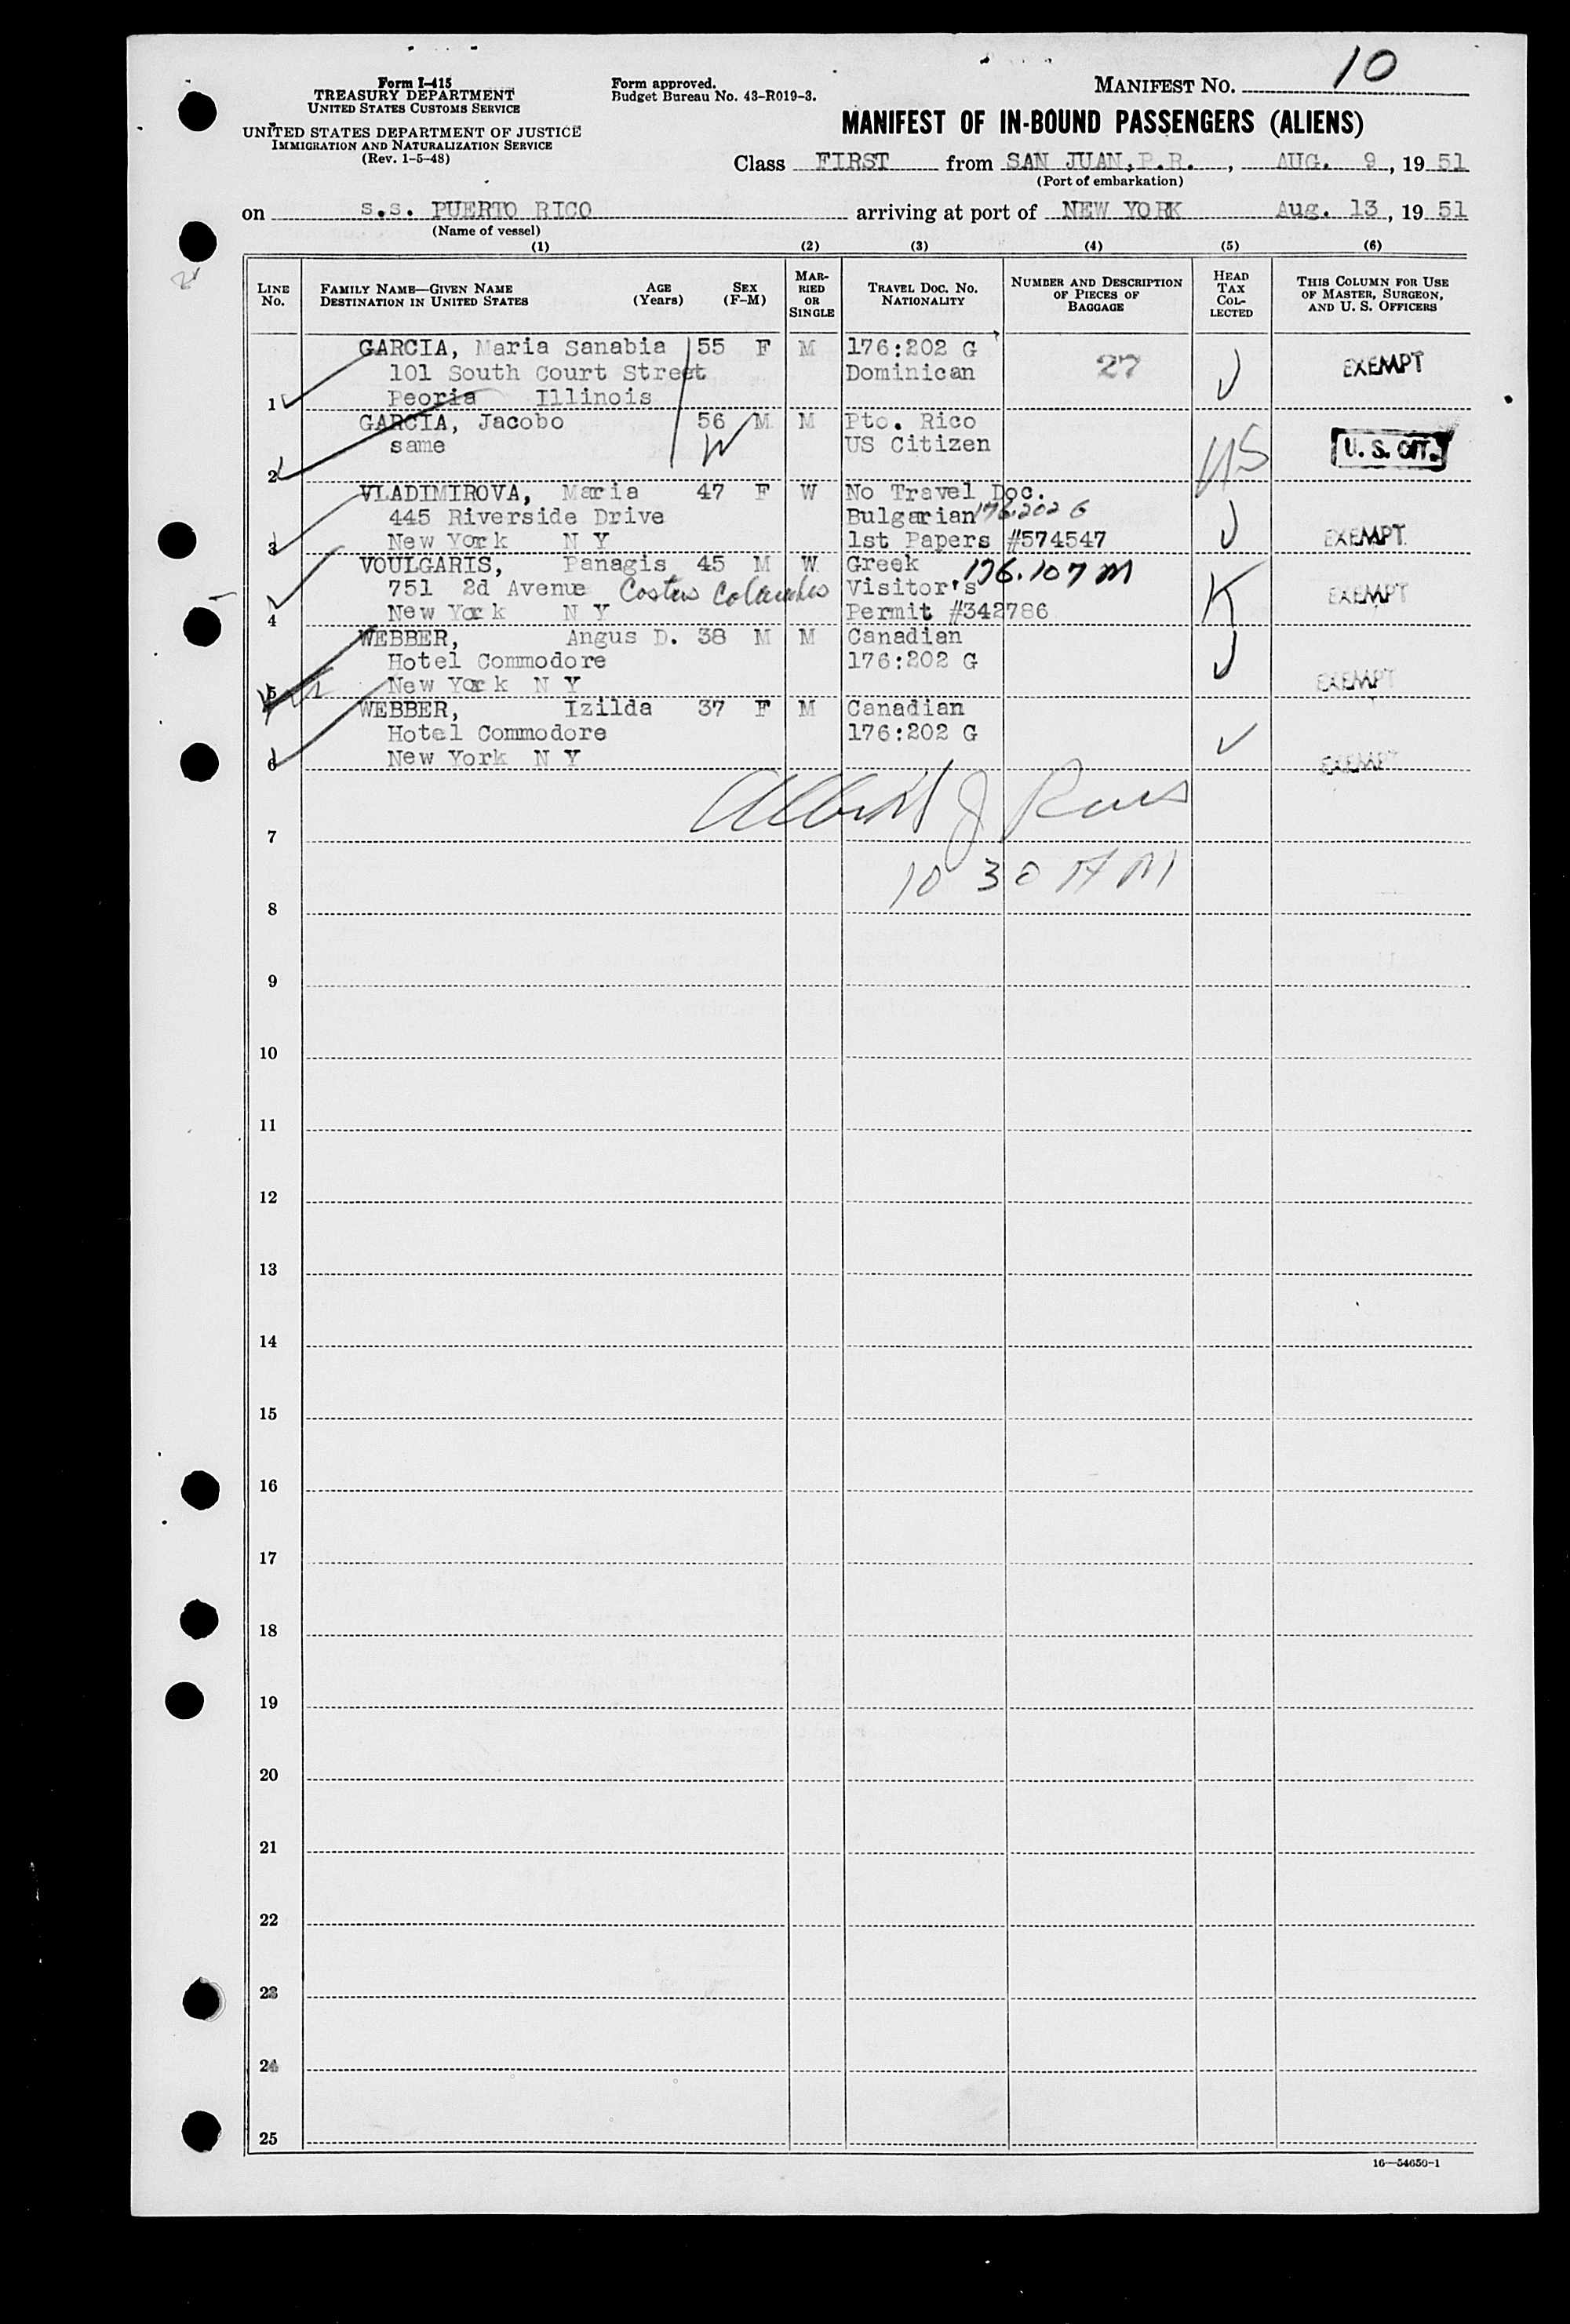 Form I-415
TREASURY DEPARTMENT
UNITED STATES CUSTOMS SERVICE
UNITED STATES DEPARTMENT OF JUSTICE
IMMIGRATION AND NATURALIZATION SERVICE
(Rev. 1-5-48)
Form approved.
Budget Bureau No. 43-R019-3.
MANIFEST NO. 10
MANIFEST OF IN-BOUND PASSENGERS (ALIENS)
Class FIRST from SAN JUAN, P.R., AUG. 9, 1951
(Port of embarkation)
on s.s. PUERTO RICO arriving at port of NEW YORK Aug. 13, 1951
(Name of vessel)
(1) (2) (3) (4) (5) (6)
LINE NO.
FAMILY NAME—GIVEN NAME
DESTINATION IN UNITED STATES
AGE (Years)
SEX (F-M)
MARRIED OR SINGLE
TRAVEL DOC. NO.
NATIONALITY
NUMBER AND DESCRIPTION OF PIECES OF BAGGAGE
HEAD TAX COLLECTED
THIS COLUMN FOR USE OF MASTER, SURGEON, AND U. S. OFFICERS
GARCIA, Maria Sanabia 55 F M 176:202 G 27 EXEMPT
101 South Court Street Dominican
1 Peoria Illinois
GARCIA, Jacobo 56 M M Pto. Rico
same W US Citizen US U. S. CIT.
2
VLADIMIROVA, Maria 47 F W No Travel Doc.
445 Riverside Drive Bulgarian 176.202 G
3 New York N Y 1st Papers #574547 EXEMPT
VOULGARIS, Panagis 45 M W Greek 176.107 M
751 2d Avenue Visitor's K EXEMPT
4 New York N Y Permit #342786
WEBBER, Angus D. 38 M M Canadian
Hotel Commodore 176:202 G
5 New York N Y EXEMPT
WEBBER, Izilda 37 F M Canadian
Hotel Commodore 176:202 G
6 New York N Y EXEMPT
7
10 30 A M
8
9
10
11
12
13
14
15
16
17
18
19
20
21
22
23
24
25
16—54650-1